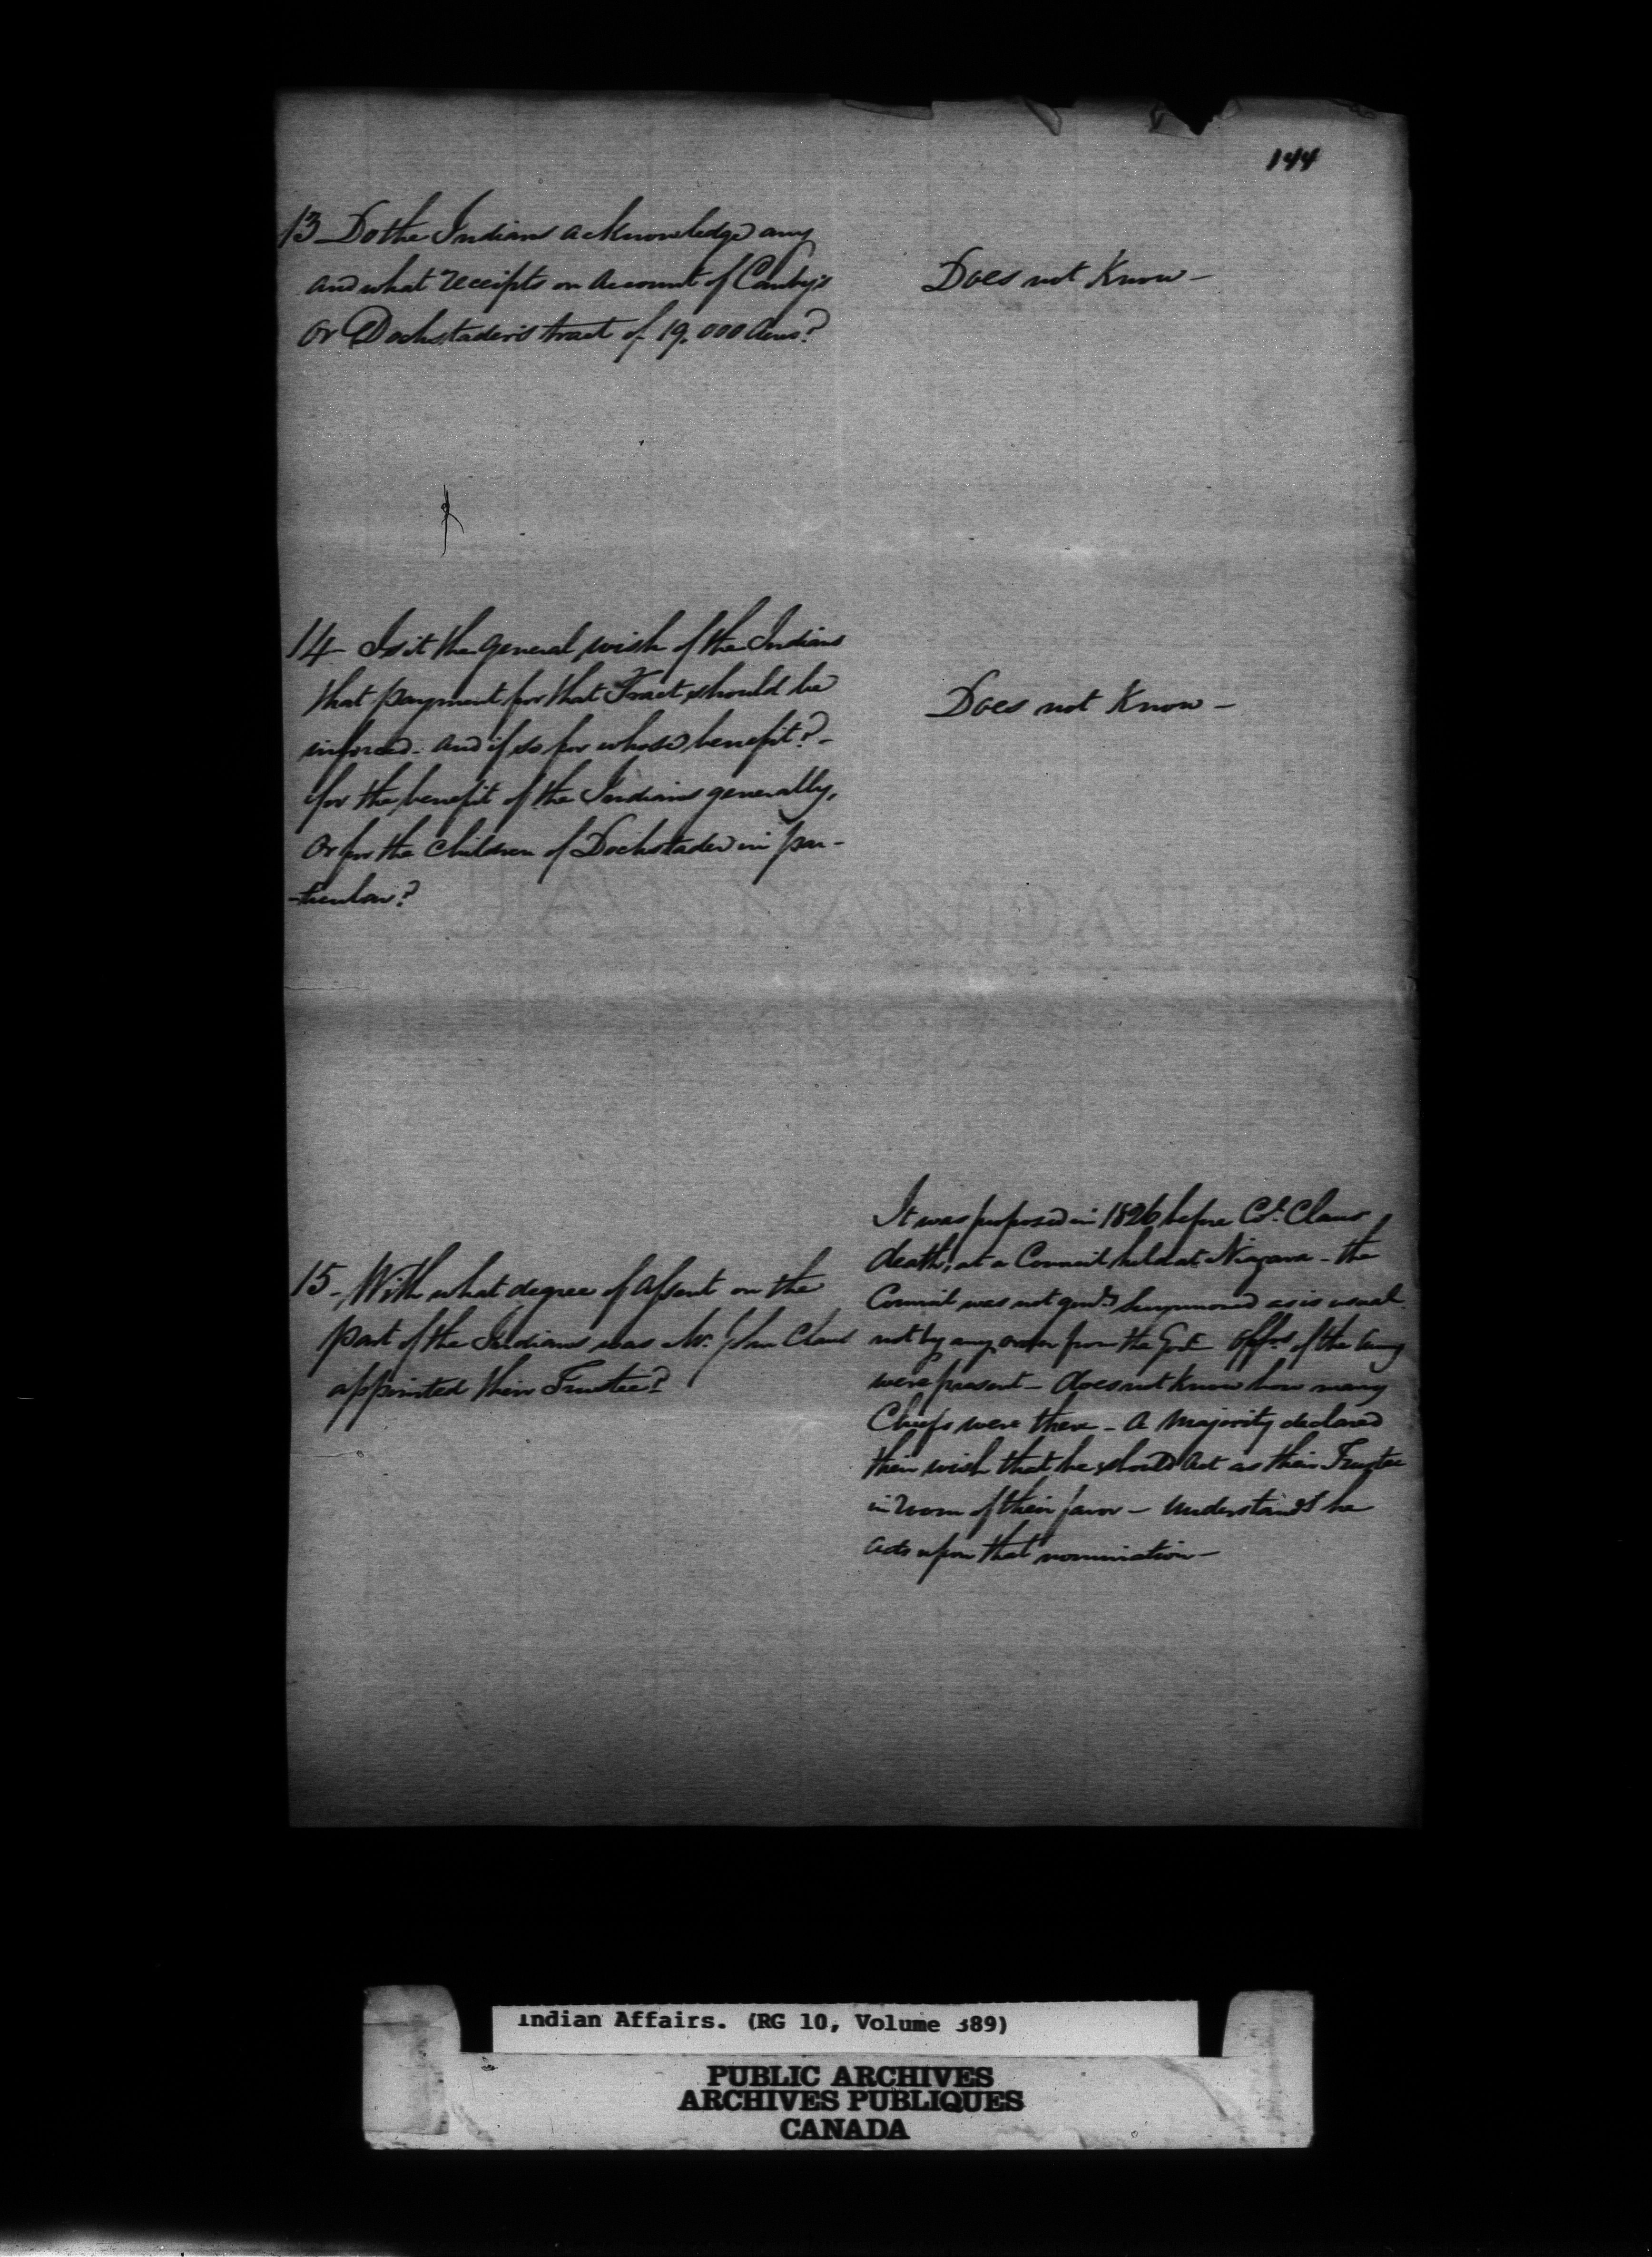 144
13 Do the Indians acknowledge any
and what receipts on Account of Canby's
or Dochstader's tract of 19,000 Acres?
Does not Know -
14 - Is it the general wish of the Indians
that payment for that Tract should be
inforced - and if so for whose benefit? -
for the benefit of the Indians generally,
or for the children of Dochstader in par-
-ticular?
Does not Know -
15 - With what degree of Assent on the
part of the Indians was Mr. John Claus
appointed their Trustee?
It was proposed in 1826 before Col. Claus
death, at a Council held at Niagara - the
Council was not genly summoned as is usual
not by any order from the Govt Offrs. of the Army
were present - does not know how many
Chiefs were there - a Majority declared
their wish that he should Act as their Trustee
in room of their favor - understands he
acts upon that nomination -
Indian Affairs. (RG 10, Volume 389)
PUBLIC ARCHIVES
ARCHIVES PUBLIQUES
CANADA